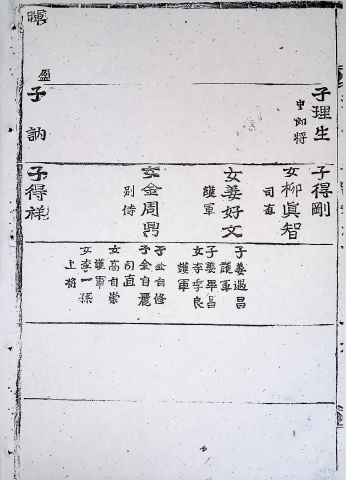 盈
子理生
中郎将
子訥
子得剛
女柳眞智
司直
女姜好文
護軍
女金周鼎
別侍
子得祥
子姜遇昌
護軍
子姜平昌
女李季良
護軍
子金自脩
子金自麗
司直
女高自崇
護軍
女李一孫
上將